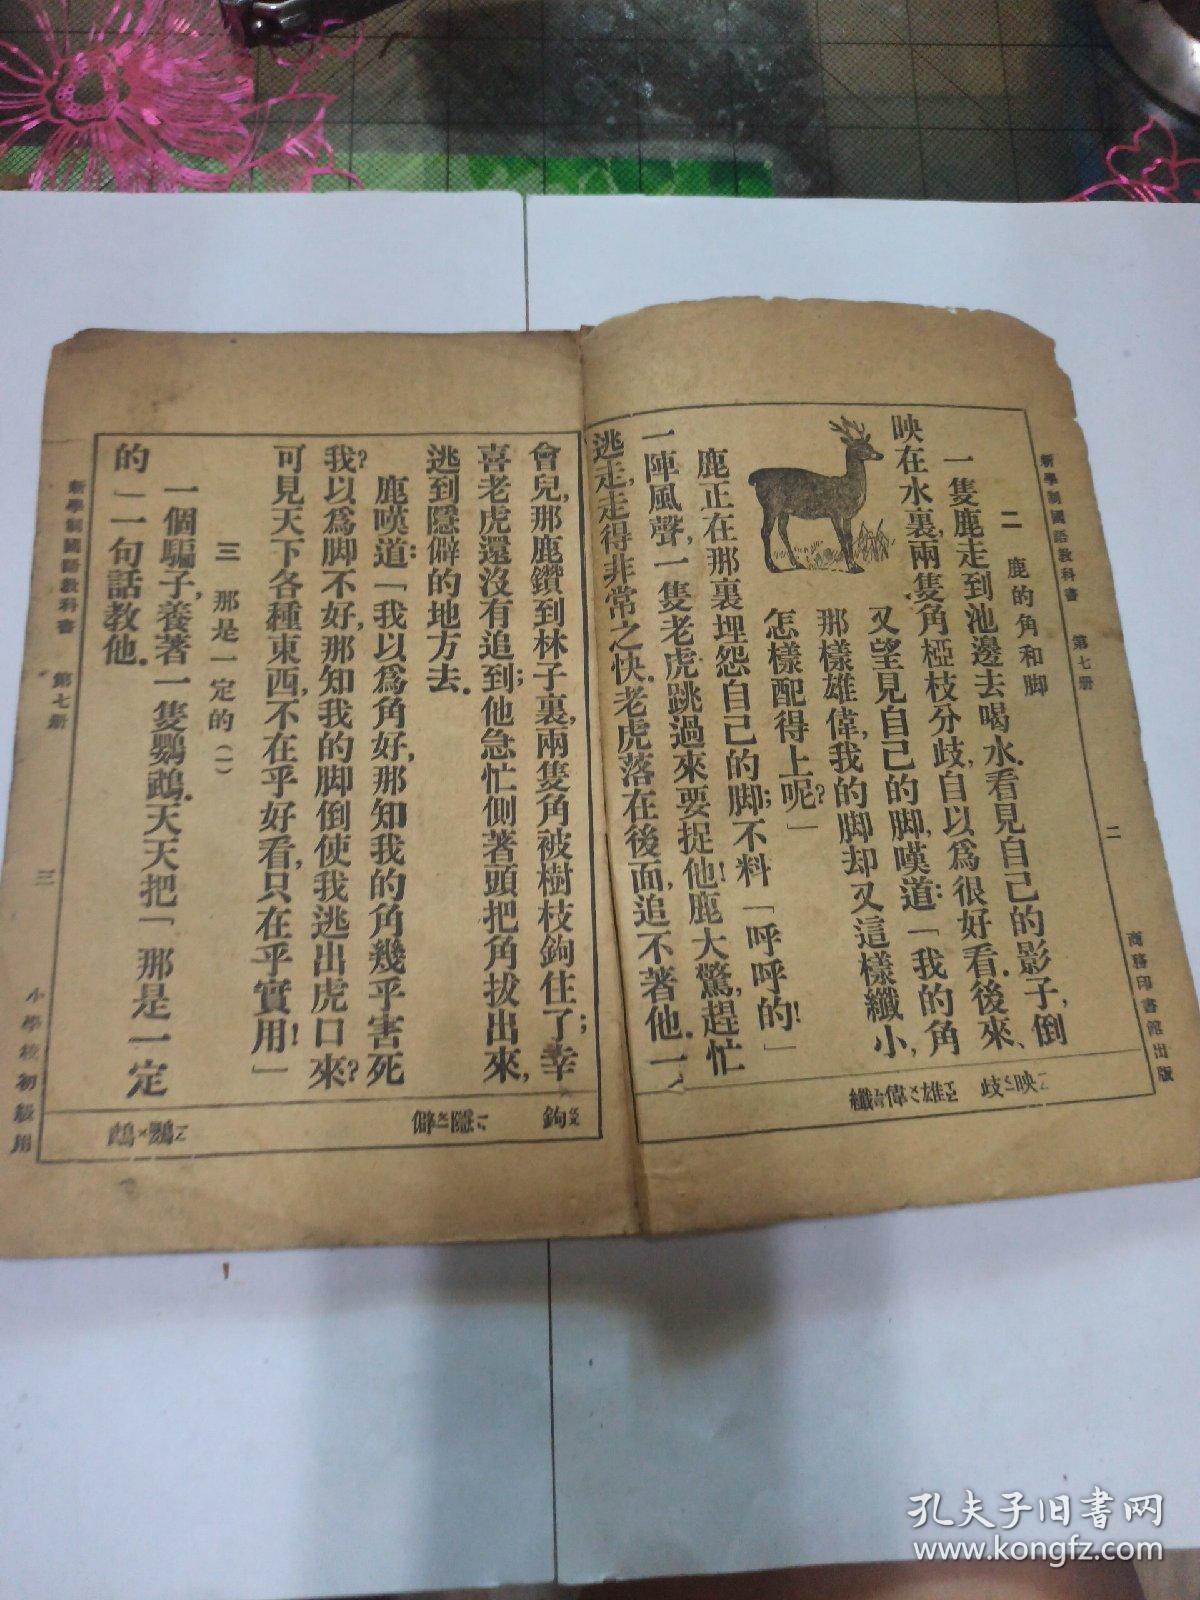 新學制國語教科書 第七册 二 商務印書館出版
二 鹿的角和脚
一隻鹿走到池邊去喝水.看見自己的影子,倒
映在水裏,兩隻角椏枝分歧,自以爲很好看.後來、
又望見自己的脚,嘆道:「我的角
那樣雄偉,我的脚却又這樣纖小,
怎樣配得上呢?」
鹿正在那裏埋怨自己的脚;不料「呼呼的!」
一陣風聲,一隻老虎跳過來要捉他!鹿大驚,趕忙
逃走,走得非常之快.老虎落在後面,追不著他.一
映 歧 雄 偉 纖
會兒,那鹿鑽到林子裏,兩隻角被樹枝鉤住了;幸
喜老虎還沒有追到;他急忙側著頭把角拔出來,
逃到隱僻的地方去.
鹿嘆道:「我以爲角好,那知我的角幾乎害死
我?我以爲脚不好,那知我的脚倒使我逃出虎口來?
可見天下各種東西,不在乎好看,只在乎實用!」
三 那是一定的(一)
一個騙子,養著一隻鸚鵡.天天把「那是一定
的」一句話教他.
鉤 隱 僻 鸚 鵡
新學制國語教科書 第七册 三 小學校初級用
孔夫子旧书网
www.kongfz.com